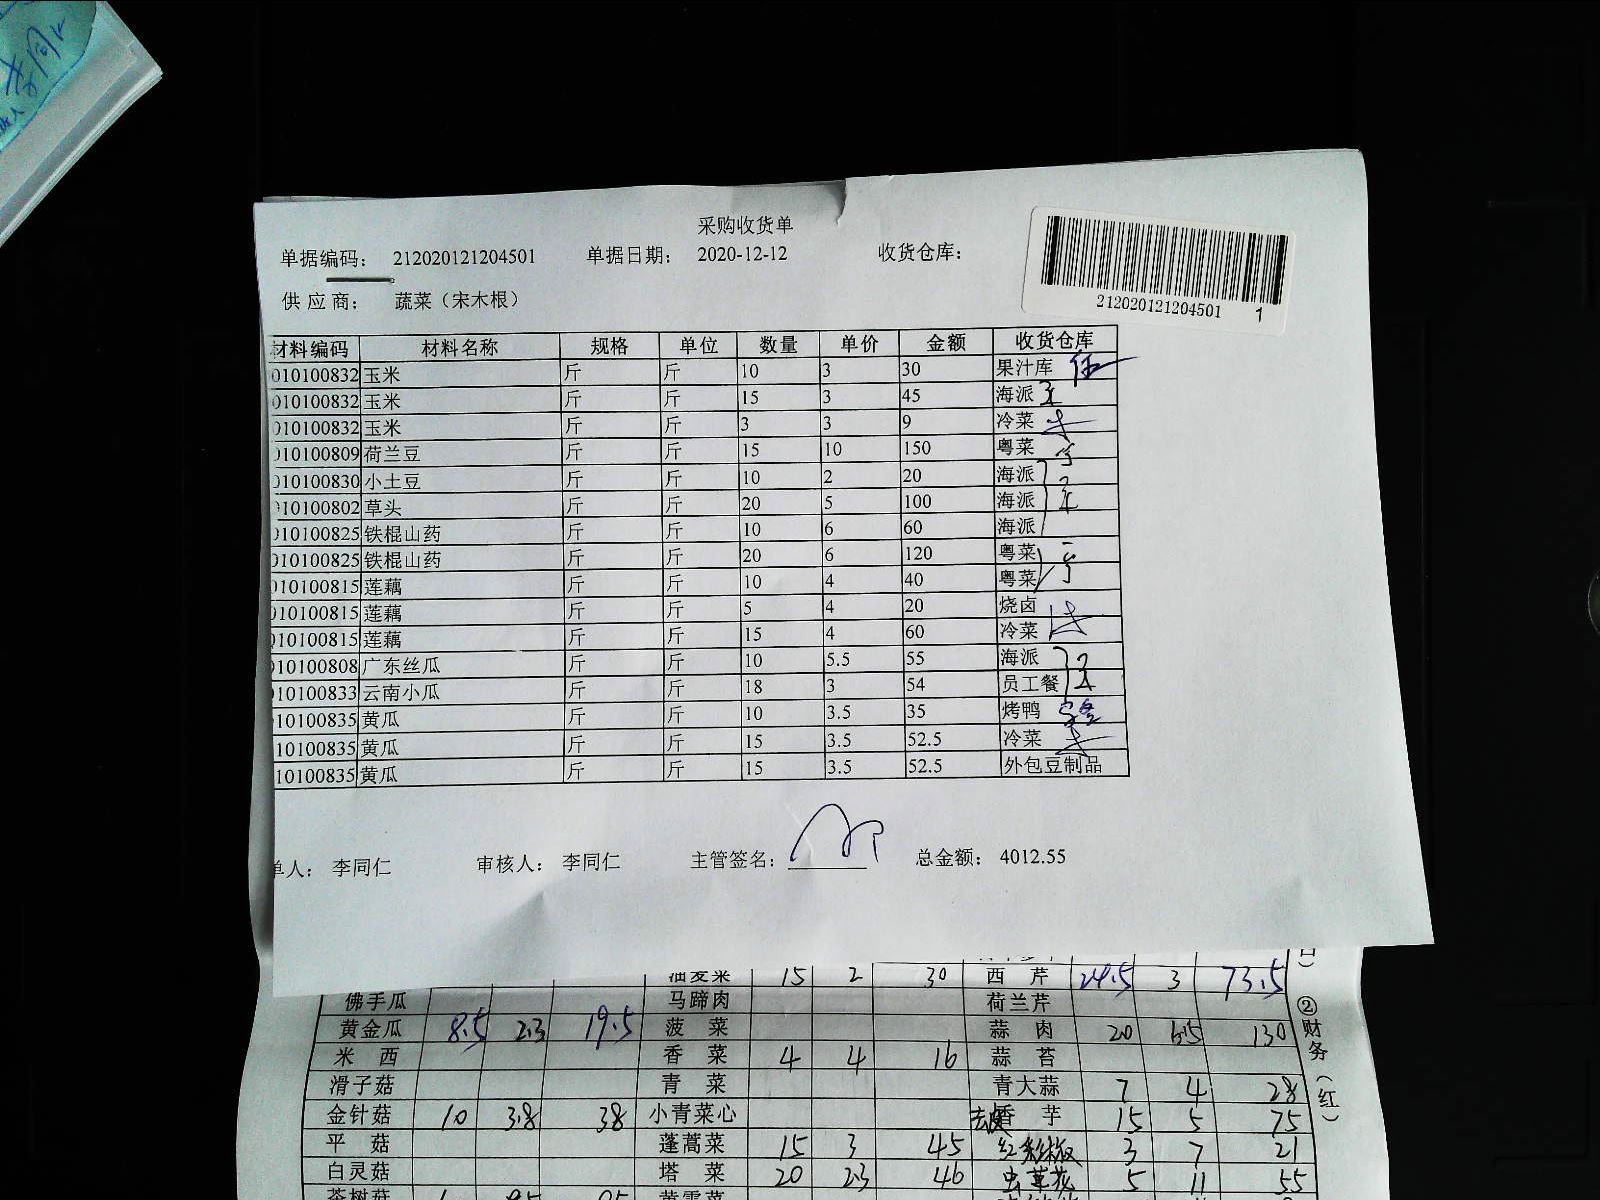 采购收货单
单据编码： 212020121204501 单据日期： 2020-12-12 收货仓库：
212020121204501 1
供应商： 蔬菜（宋木根）
材料编码 材料名称 规格 单位 数量 单价 金额 收货仓库
010100832 玉米 斤 斤 10 3 30 果汁库
010100832 玉米 斤 斤 15 3 45 海派
010100832 玉米 斤 斤 3 3 9 冷菜
010100809 荷兰豆 斤 斤 15 10 150 粤菜
010100830 小土豆 斤 斤 10 2 20 海派
010100802 草头 斤 斤 20 5 100 海派
010100825 铁棍山药 斤 斤 10 6 60 海派
010100825 铁棍山药 斤 斤 20 6 120 粤菜
010100815 莲藕 斤 斤 10 4 40 粤菜
010100815 莲藕 斤 斤 5 4 20 烧卤
010100815 莲藕 斤 斤 15 4 60 冷菜
010100808 广东丝瓜 斤 斤 10 5.5 55 海派
010100833 云南小瓜 斤 斤 18 3 54 员工餐
010100835 黄瓜 斤 斤 10 3.5 35 烤鸭
10100835 黄瓜 斤 斤 15 3.5 52.5 冷菜
10100835 黄瓜 斤 斤 15 3.5 52.5 外包豆制品
单人： 李同仁 审核人： 李同仁 主管签名： 总金额： 4012.55
油麦菜 15 2 30 西芹 24.5 3 73.5
佛手瓜 马蹄肉 荷兰芹
黄金瓜 8.5 2.3 19.5 菠菜 蒜肉 20 6.5 130
米西 香菜 4 4 16 蒜苔
滑子菇 青菜 青大蒜 7 4 28
金针菇 10 3.8 38 小青菜心 去皮香芋 15 5 75
平菇 蓬蒿菜 15 3 45 红彩椒 3 7 21
白灵菇 塔菜 20 2.3 46 虫草花 5 11 55
茶树菇
②财务（红）